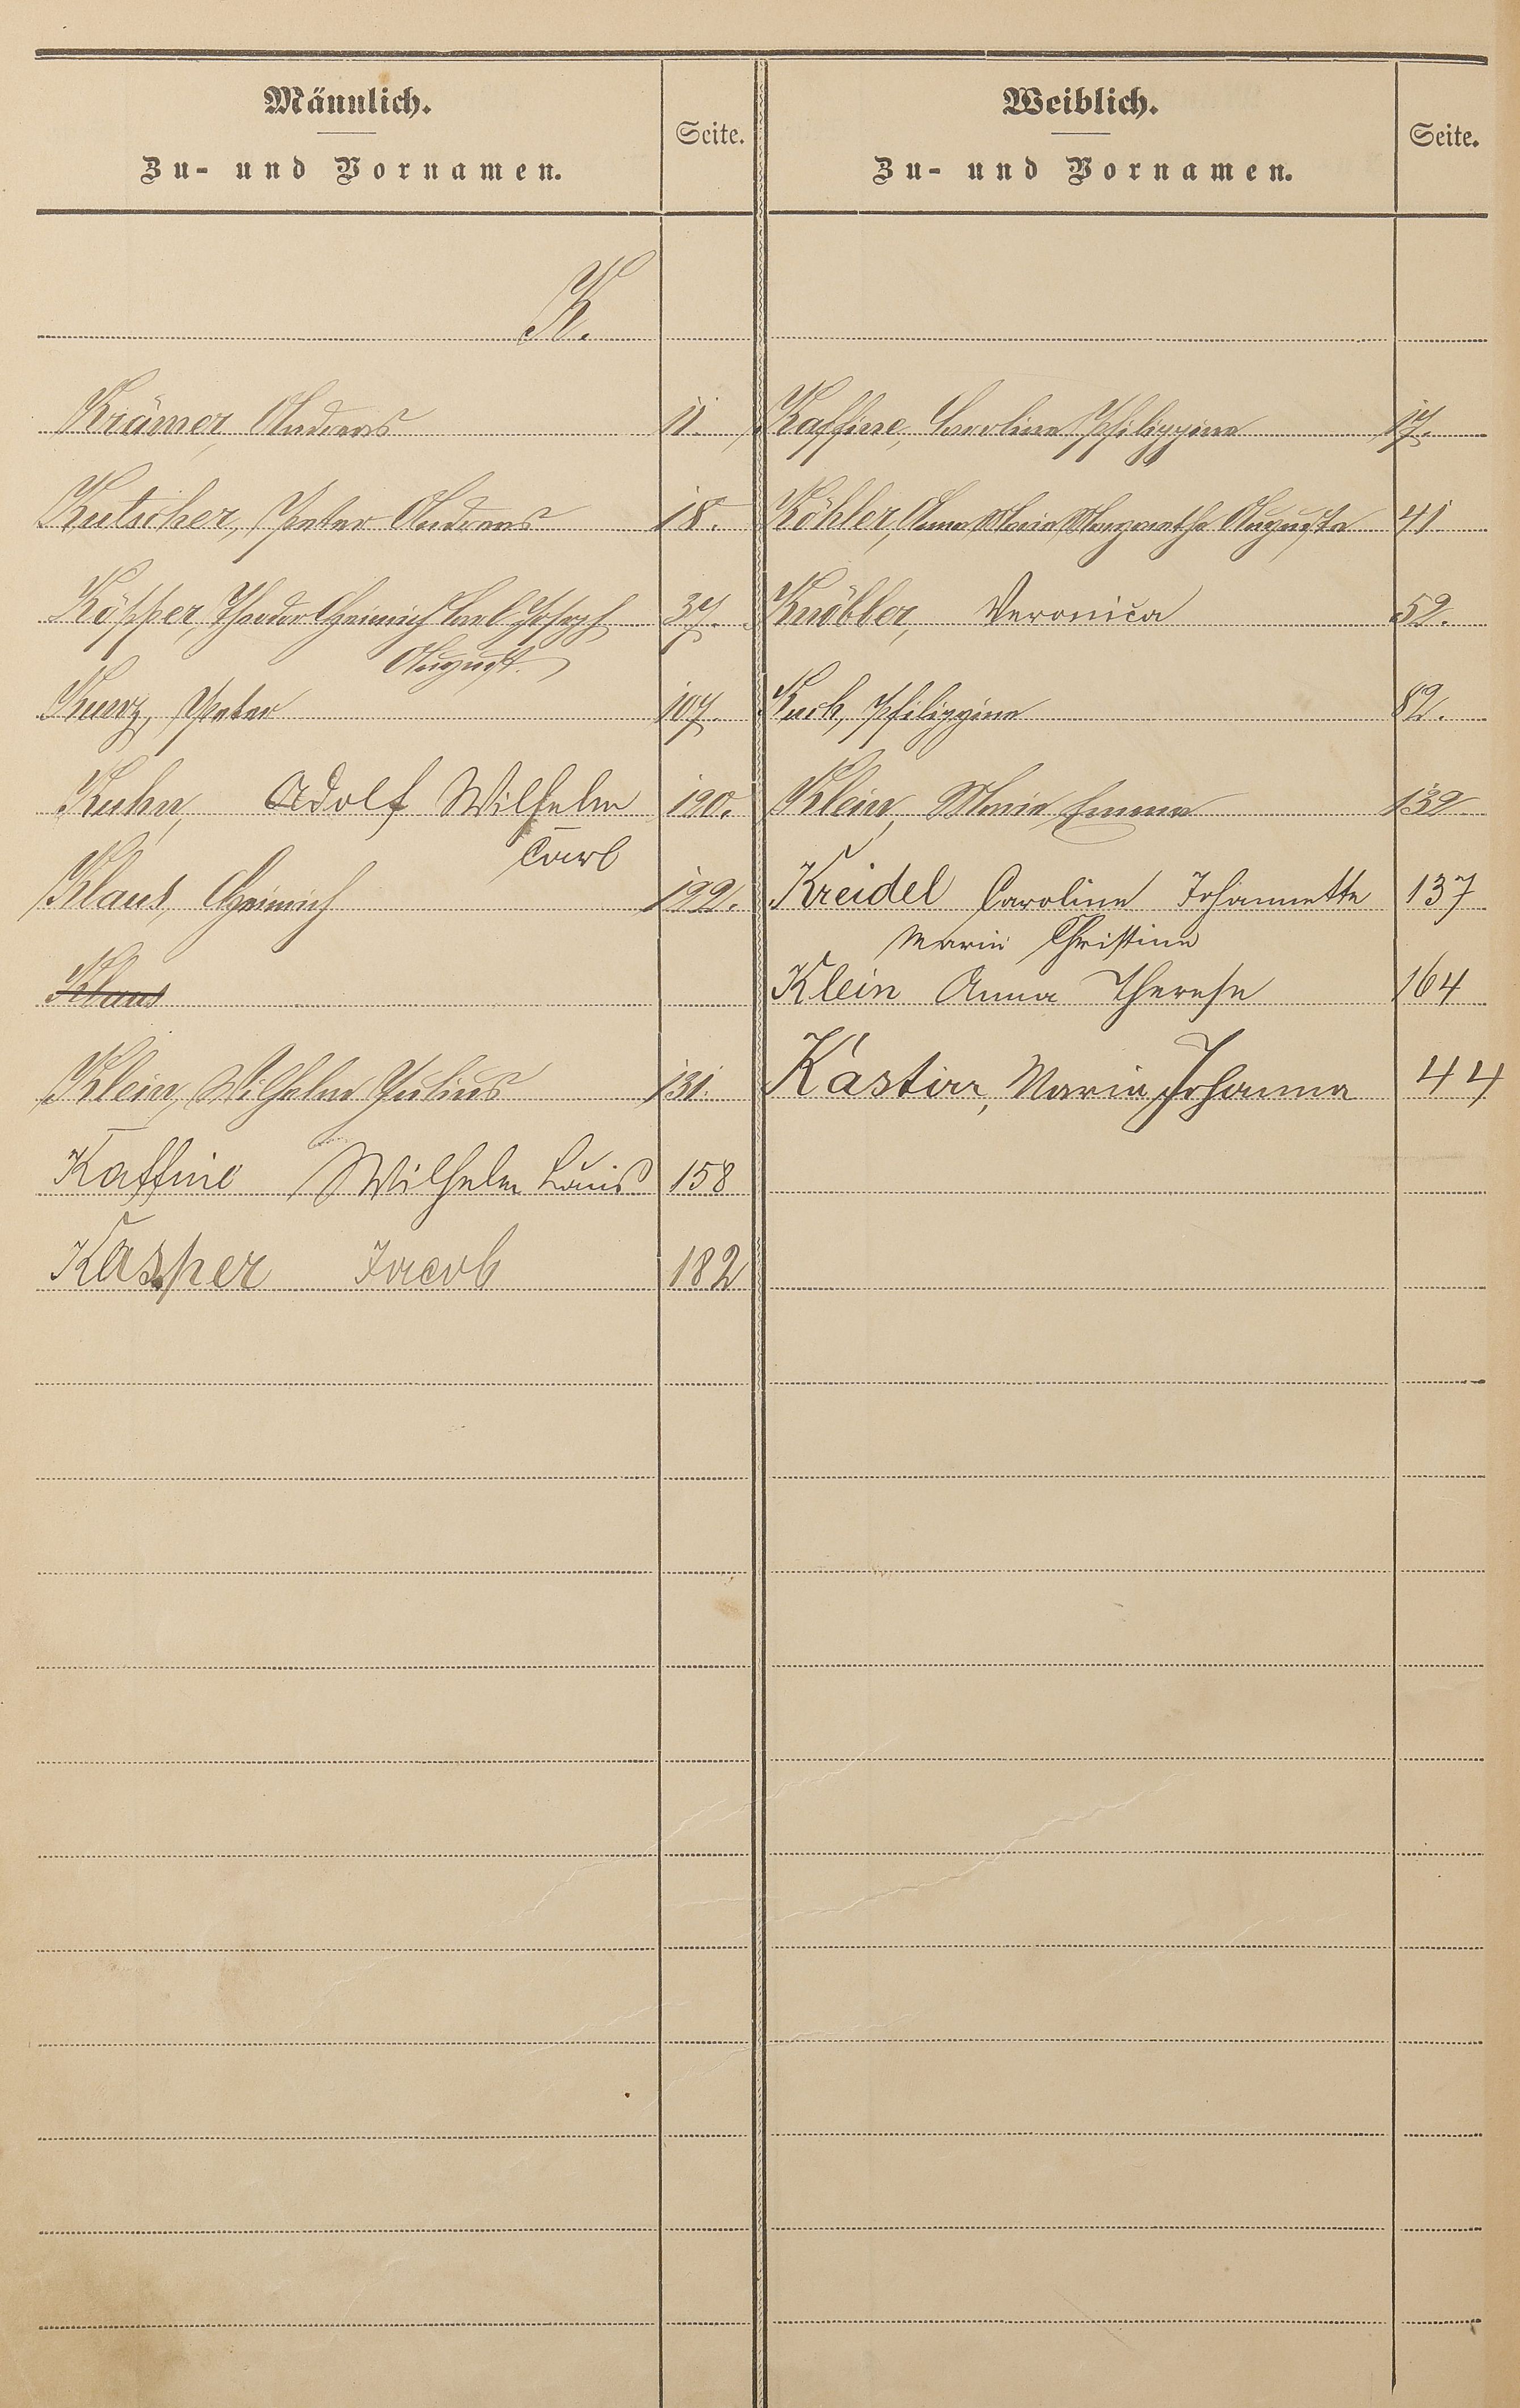 Männlich.
Zu- und Vornamen.
Seite.
Weiblich.
Zu- und Vornamen.
Seite.
K.
Krämer, Andreas 11.
Kutscher, Peter Andreas 18.
Kösper, Theodor Heinrich Carl Joseph 37.
August
Kunz, Peter 107.
Kuhn, Adolf Wilhelm 120.
Carl
Klaus, Heinrich 122.
Klaus
Klein, Wilhelm Julius 131.
Kaffine Wilhelm Louis 158
Kasper Jacob 182
Kaffine, Caroline Philippine 17.
Köhler, Anna Maria Margaretha Augusta 41
Knöbler, Veronica 52.
Kuch, Philippine 82.
Klein, Maria Emma 132
Kreidel Caroline Johannette 137
Marie Christine
Klein Anna Therese 164
Maria Johanna 44